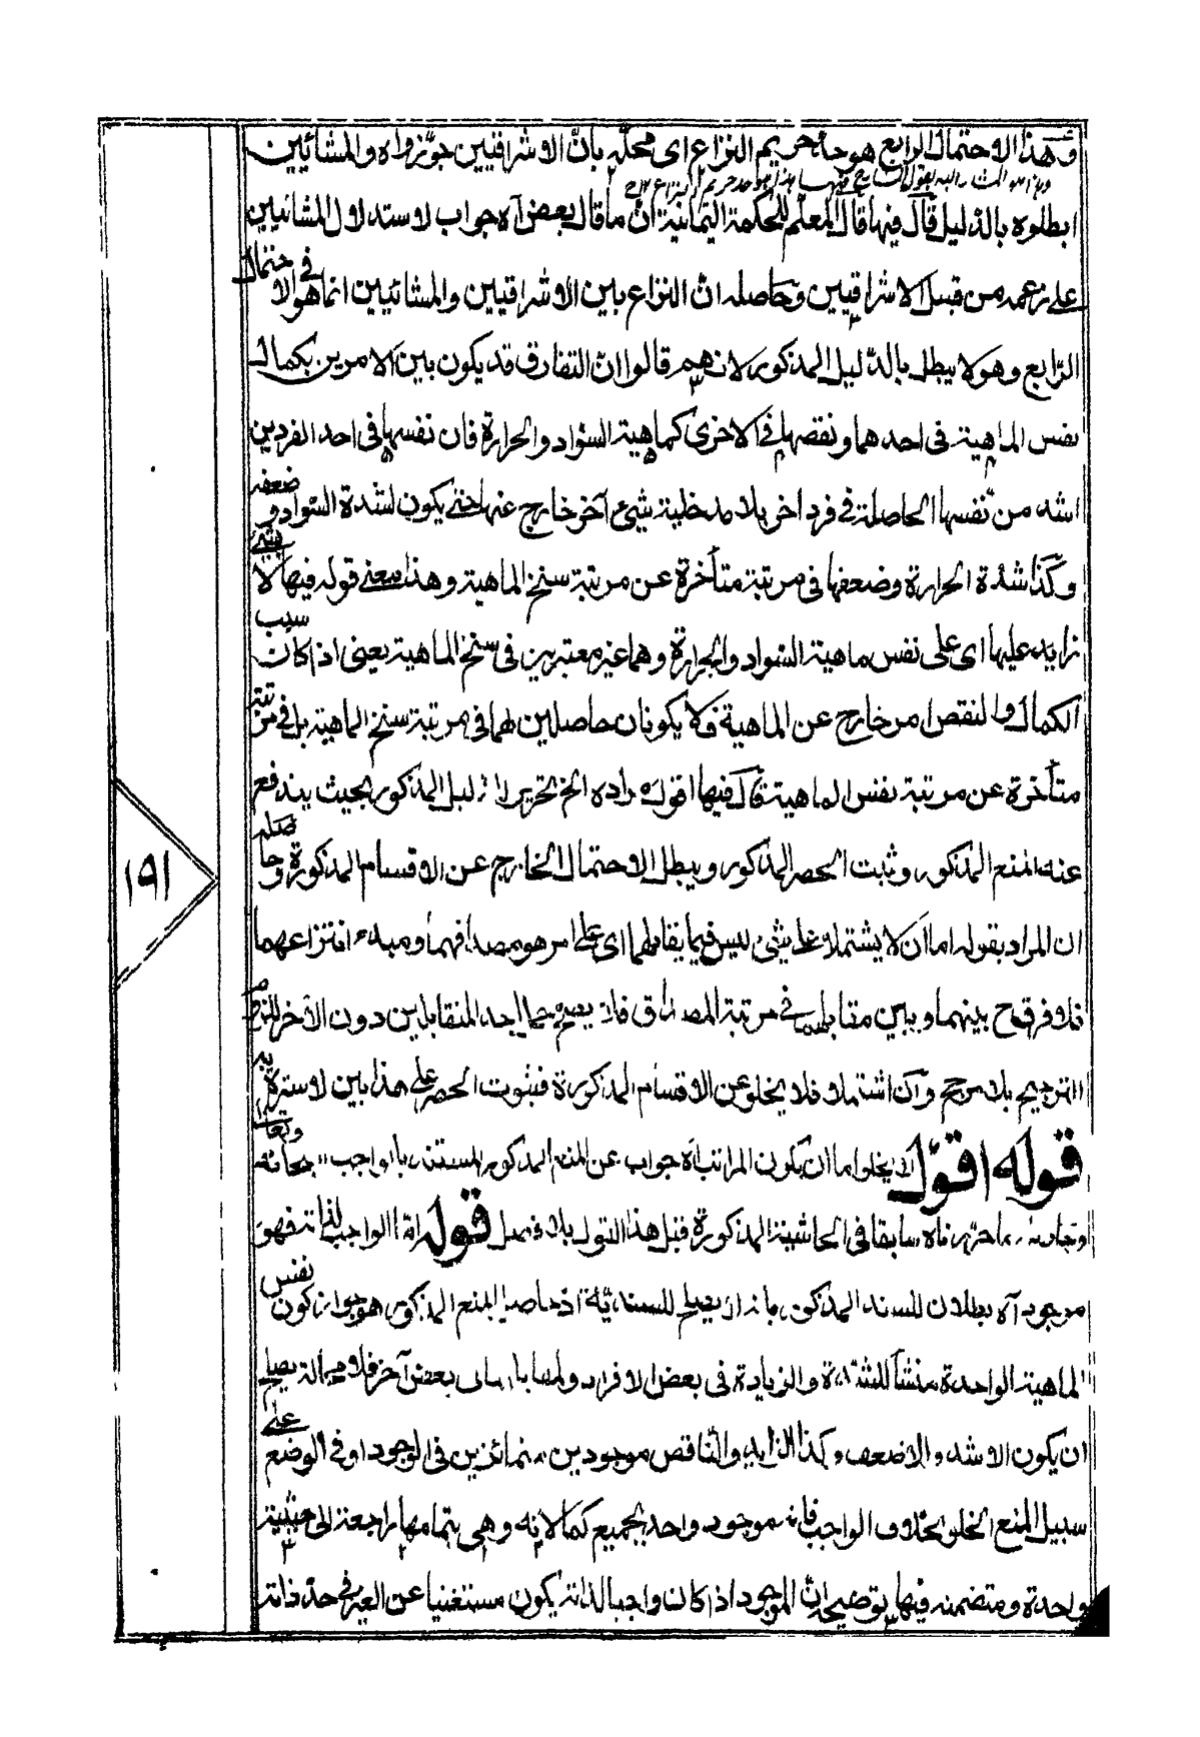 وهذا الاحتمال الرابع هو حد حريم النزاع اى محله بان الاشراقيين جوزواه والمشائيين
ابطلوه بالدليل قال فيها قال المعلم للحكمة اليمانية ان ما قال بعض آه جواب لاستدلال المشائيين
على زعمه من قبل الاشراقيين وحاصله ان النزاع بين الاشراقيين والمشائيين انما هو فى الاحتمال
الرابع وهو لا يبطل بالدليل المذكور لانهم قالوا ان التفارق قد يكون بين الامرين بكمال
نفس الماهية فى احدهما ونقصها فى الاخرى كماهية السواد والحرارة فان نفسها فى احد الفردين
اشد من نفسها الحاصلة فى فرد اخر بلا مدخلية شيئ آخر خارج عنها حتى يكون لشدة السواد وضعفه
وكذا شدة الحرارة وضعفها فى مرتبة متأخرة عن مرتبة سنخ الماهية وهذا معنى قوله فيها لا بشيئ
زايد عليها اى على نفس ماهية السواد والحرارة وهما غير معتبرين فى سنخ الماهية يعنى اذا كان سبب
الكمال والنقص امر خارج عن الماهية فلا يكونان حاصلين لهما فى مرتبة سنخ الماهية بل فى مرتبة
متأخرة عن مرتبة نفس الماهية قال فيها اقول مراده الخ تحرير لدليل المذكور بحيث يندفع
عنه المنع المذكور وثبت الحصر المذكور ويبطل الاحتمال الخارج عن الاقسام المذكورة وحاصله
ان المراد بقوله اما ان لا يشتملا على شيئ ليس فيما يقابلهما اى على امر هو مصداقهما ومبدء انتزاعهما
فلا فرق ح بينهما وبين مقابلهما فى مرتبة المصداق فلا يصح حمل احد المتقابلين دون الآخر للزوم
الترجيح بلا مرجح وان اشتملا فلا يخلو عن الاقسام المذكورة فثبوت الحصر على هذا بين لا سترة به
قوله اقول لا يخلو اما ان يكون المراتب آه جواب عن المنع المذكور المستند بالواجب سبحانه وتعالى
سابقا فى الحاشية المذكورة قبل هذا القول بلا فصل قوله اما الواجب لذاته فهو
موجود آه بطلان للسند المذكور بانه لا يصلح للسندية اذ حاصل المنع المذكور هو جواز كون نفس
الماهية الواحدة منشأ للشدة والزيادة فى بعض الافراد ولمقابلهما فى بعض آخر فلا محالة يصلح
ان يكون الاشد والاضعف وكذا الزايد والناقص موجودين متمائزين فى الوجود او فى الوضع على
سبيل المنع الخلو بخلاف الواجب فانه موجود واحد لجميع كمالاته وهى بتمامها راجعة الى حيثية
واحدة ومتضمنه فيها توضيحه ان الموجود اذا كان واجبا لذاته يكون مستغنيا عن الغير فى حد ذاته
١٩١